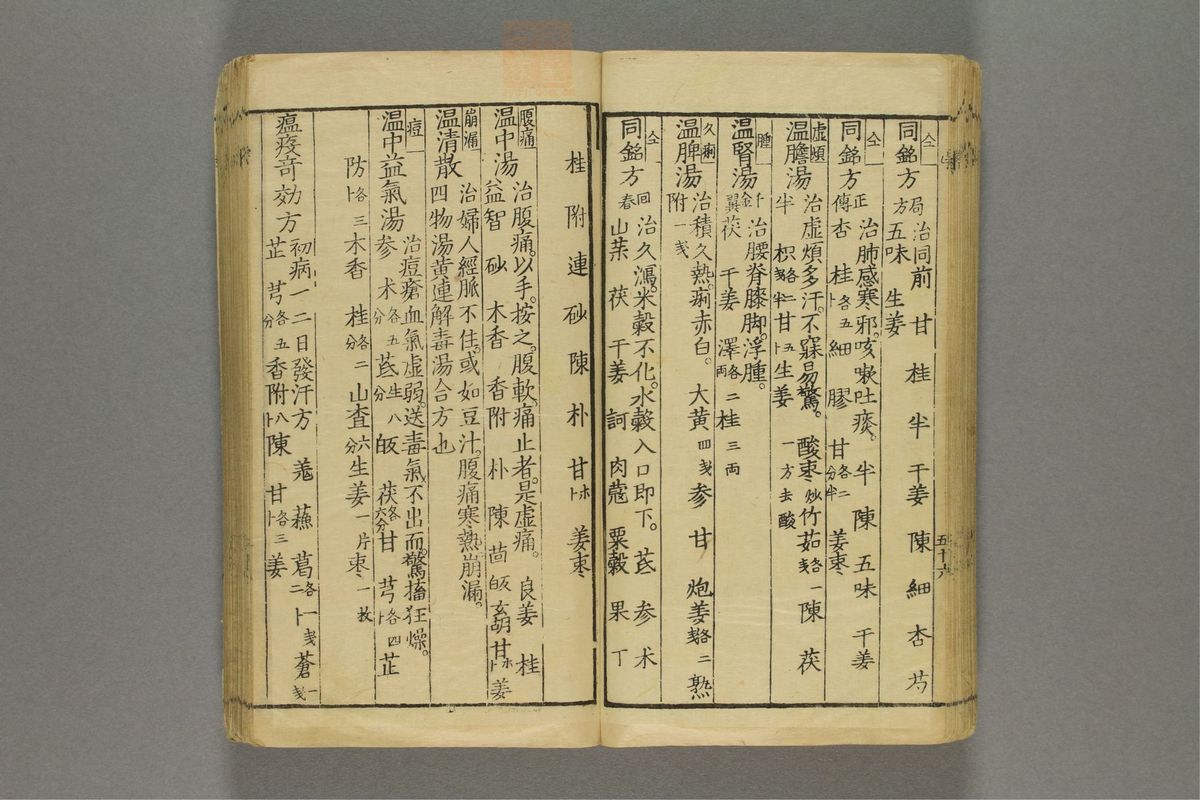 仝
同銘方 局方 治同前 甘 桂 半 干姜 陳 細 杏 芍
五味 生姜
仝
同銘方 正傳 治肺感寒邪。咳嗽吐痰。 半 陳 五味 干姜
杏 桂 各五卜 細 膠 甘 各二分半 姜 枣
虛煩
温膽湯 治虛煩多汗。不寐易驚。 酸枣 炒 竹茹 各一戔 陳 茯
半 枳 各二戔 甘 五卜 生姜 一方去酸
腫
温腎湯 千金翼 治腰脊膝脚。浮腫。
茯 干姜 澤 各二両 桂 三両
久痢
温脾湯 治積久熱痢赤白。 大黄 四戔 参 甘 炮姜 各二戔 熟
附 一戔
仝
同銘方 回春 治久瀉。米穀不化。水穀入口即下。 芪 参 术
山茱 茯 干姜 訶 肉蔻 粟穀 果 丁
五十六
桂 附 連 砂 陳 朴 甘 ホ卜 姜 枣
腹痛
温中湯 治腹痛。以手。按之。腹軟。痛止者。是虚痛。 良姜 桂
益智 砂 木香 香附 朴 陳 茴 皈 玄胡 甘 ホ卜 姜
崩漏
温清散 治婦人經脈不住。或如豆汁。腹痛寒熱崩漏。
四物湯黄連解毒湯合方也
痘
温中益氣湯 治痘瘡血氣虚弱。送毒氣不出而。驚搐狂燥。
参 术 各五分 芪 生八分 皈 茯 各六分 甘 芎 各四卜 芷
防 各三卜 木香 桂 各二分 山査 六分 生姜 一片 枣 一枚
瘟疫竒効方 初病。一二日發汗方 羗 蘓 葛 各一戔二卜 蒼 一戔
芷 芎 各五分 香附 八卜 陳 甘 各三卜 姜